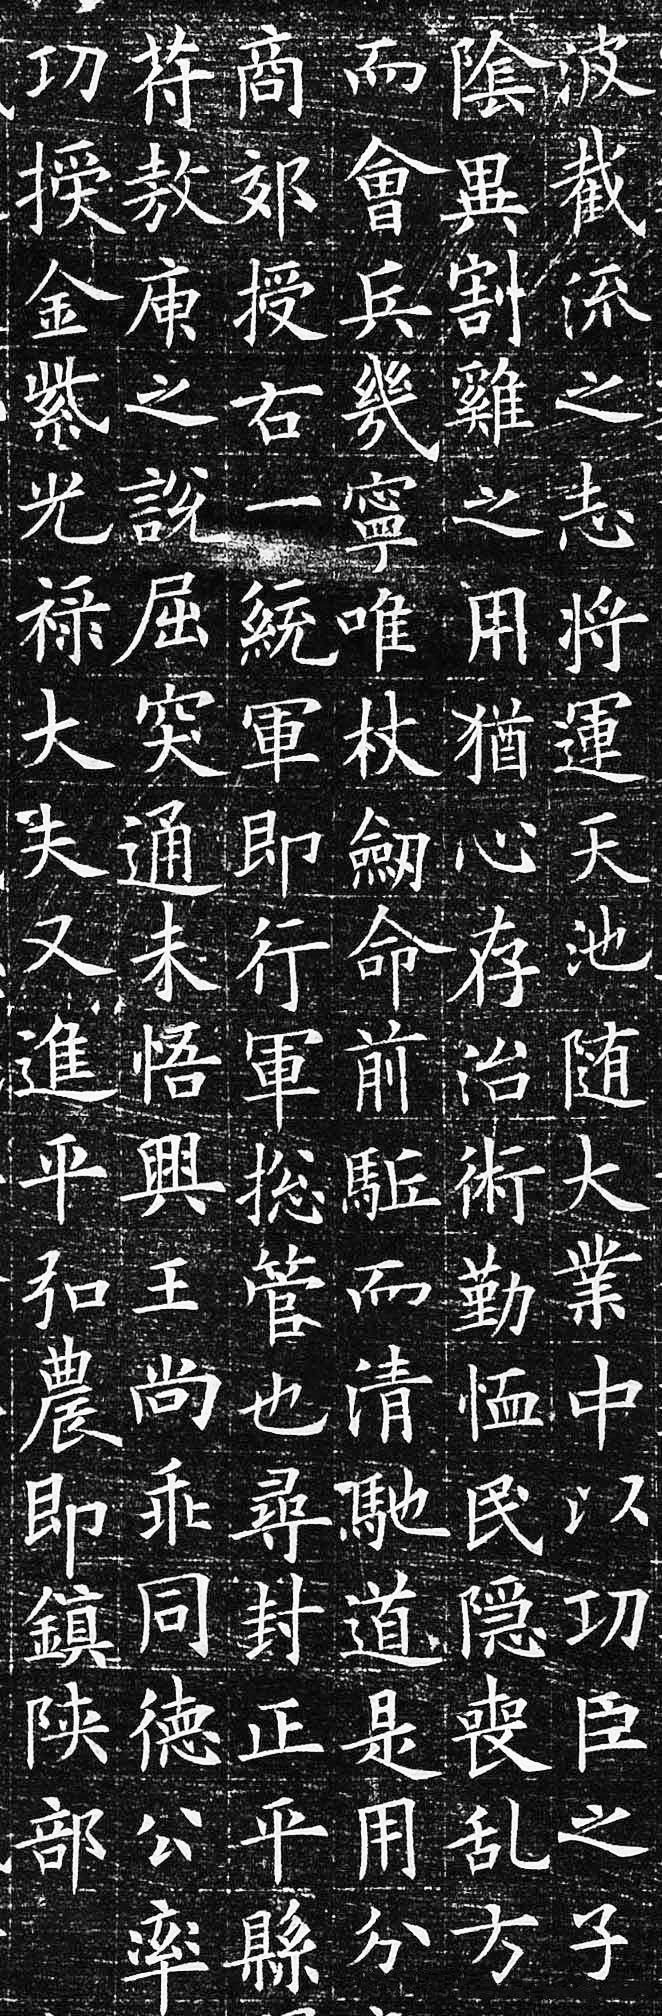 波截流之志将運天池随大業中以功臣之子
陰異割雞之用猶心存治術勤恤民隐喪乱方
而會兵幾寧唯杖劒命前駈而清馳道是用分
商郊授右一統軍即行軍捴管也尋封正平縣
苻敖庾之說屈突通未悟興王尚乖同德公率
功授金紫光禄大夫又進平弘農即鎮陕部